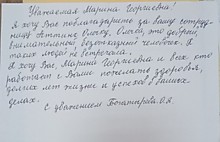 Уважаемая Марина Георгиевна!
Я хочу Вас поблагодарить за вашу сотруд-
ницу Олесю. Олеся, это добрый,
внимательный, безотказный человек. Я
таких людей не встречала.
Я хочу Вас, Марина Георгиевна и всех кто
работает с Вами пожелать здоровья,
долгих лет жизни и успехов в ваших
делах.
С уважением